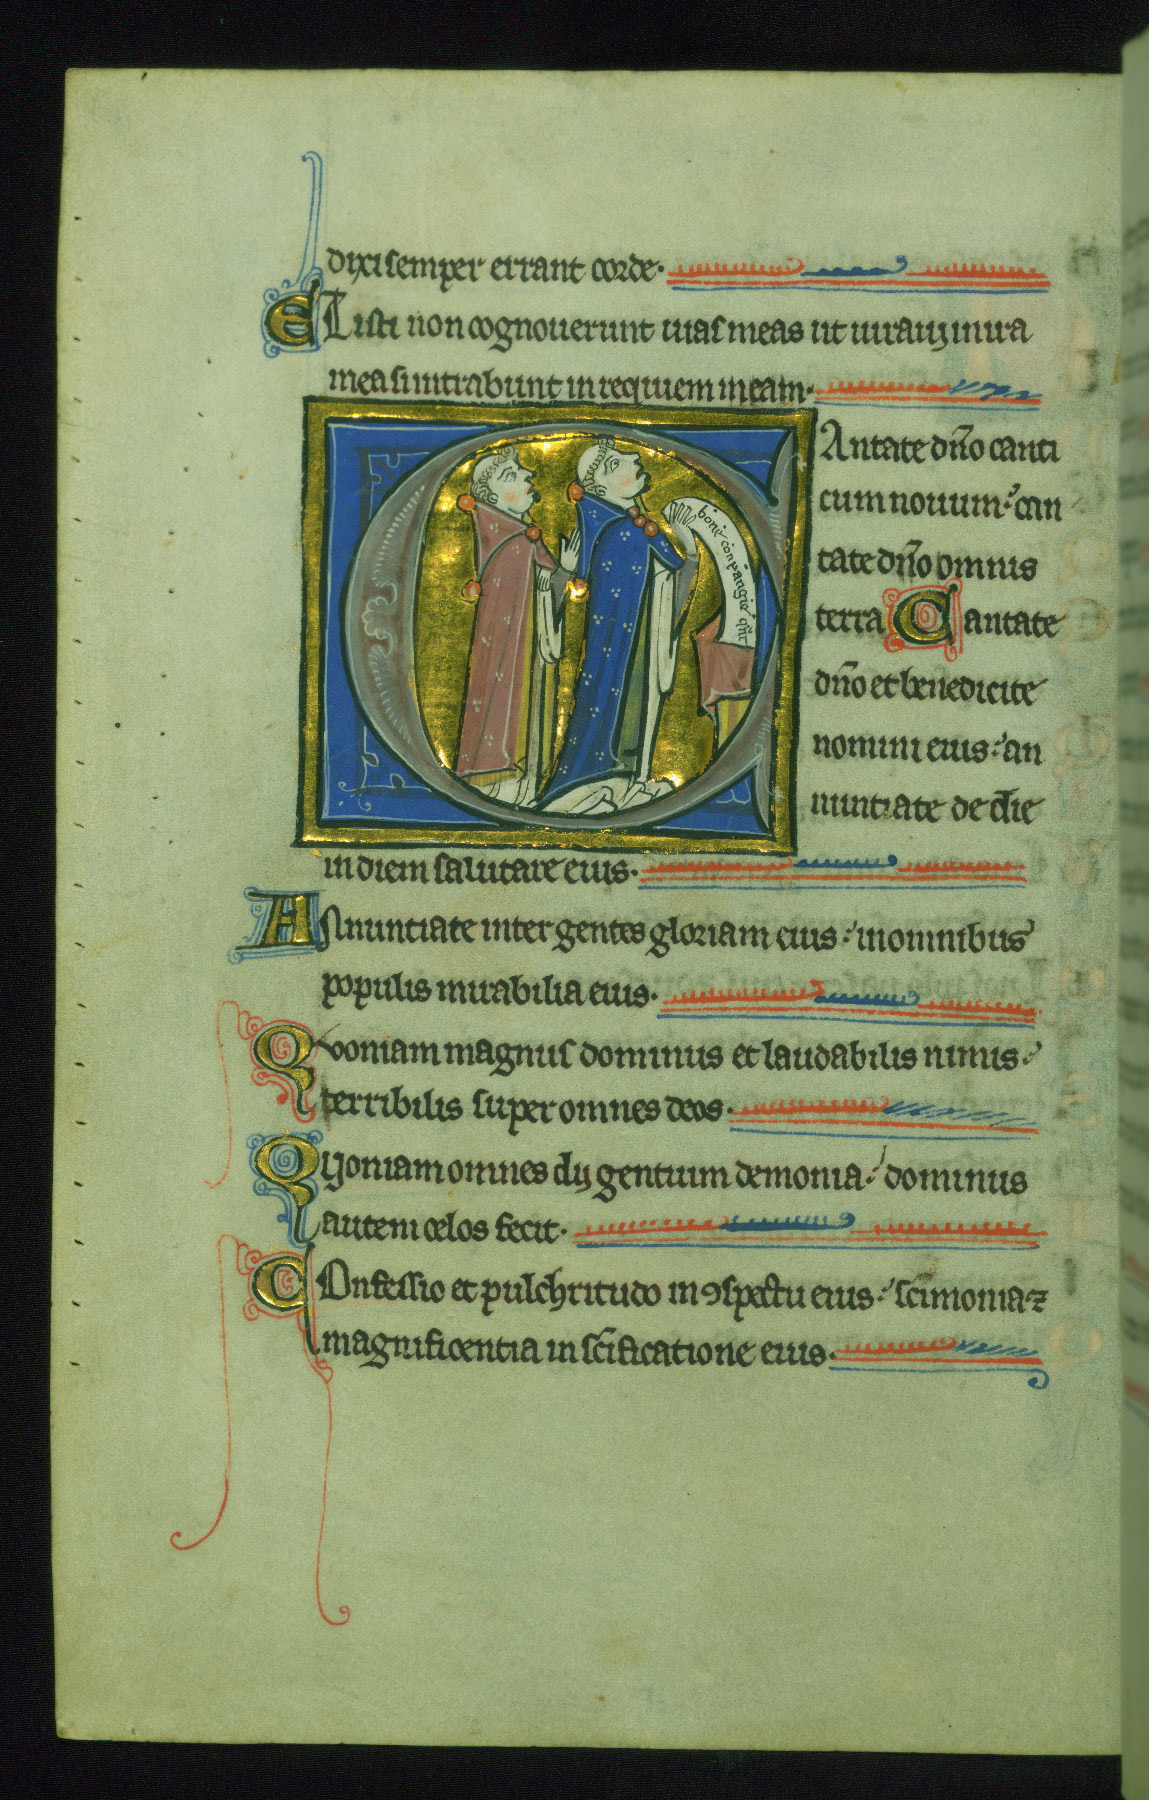 dixi semper errant corde.
ET isti non cognouerunt uias meas ut iuraui in ira
mea si intrabunt in requiem meam.
CAntate dño canti
cum nouum: can
tate dño omnis
terra Cantate
dño et benedicite
nomini eius: an
nuntiate de die
in diem salutare eius.
ANnunciate inter gentes gloriam eius: in omnibus
populis mirabilia eius.
Quoniam magnus dominus et laudabilis nimis:
terribilis super omnes deos.
Quoniam omnes dij gentium demonia: dominus
autem celos fecit.
COnfessio et pulchritudo in ꝯspectu eius: scimonia ⁊
magnificentia in scificatione eius.
boine conpangie